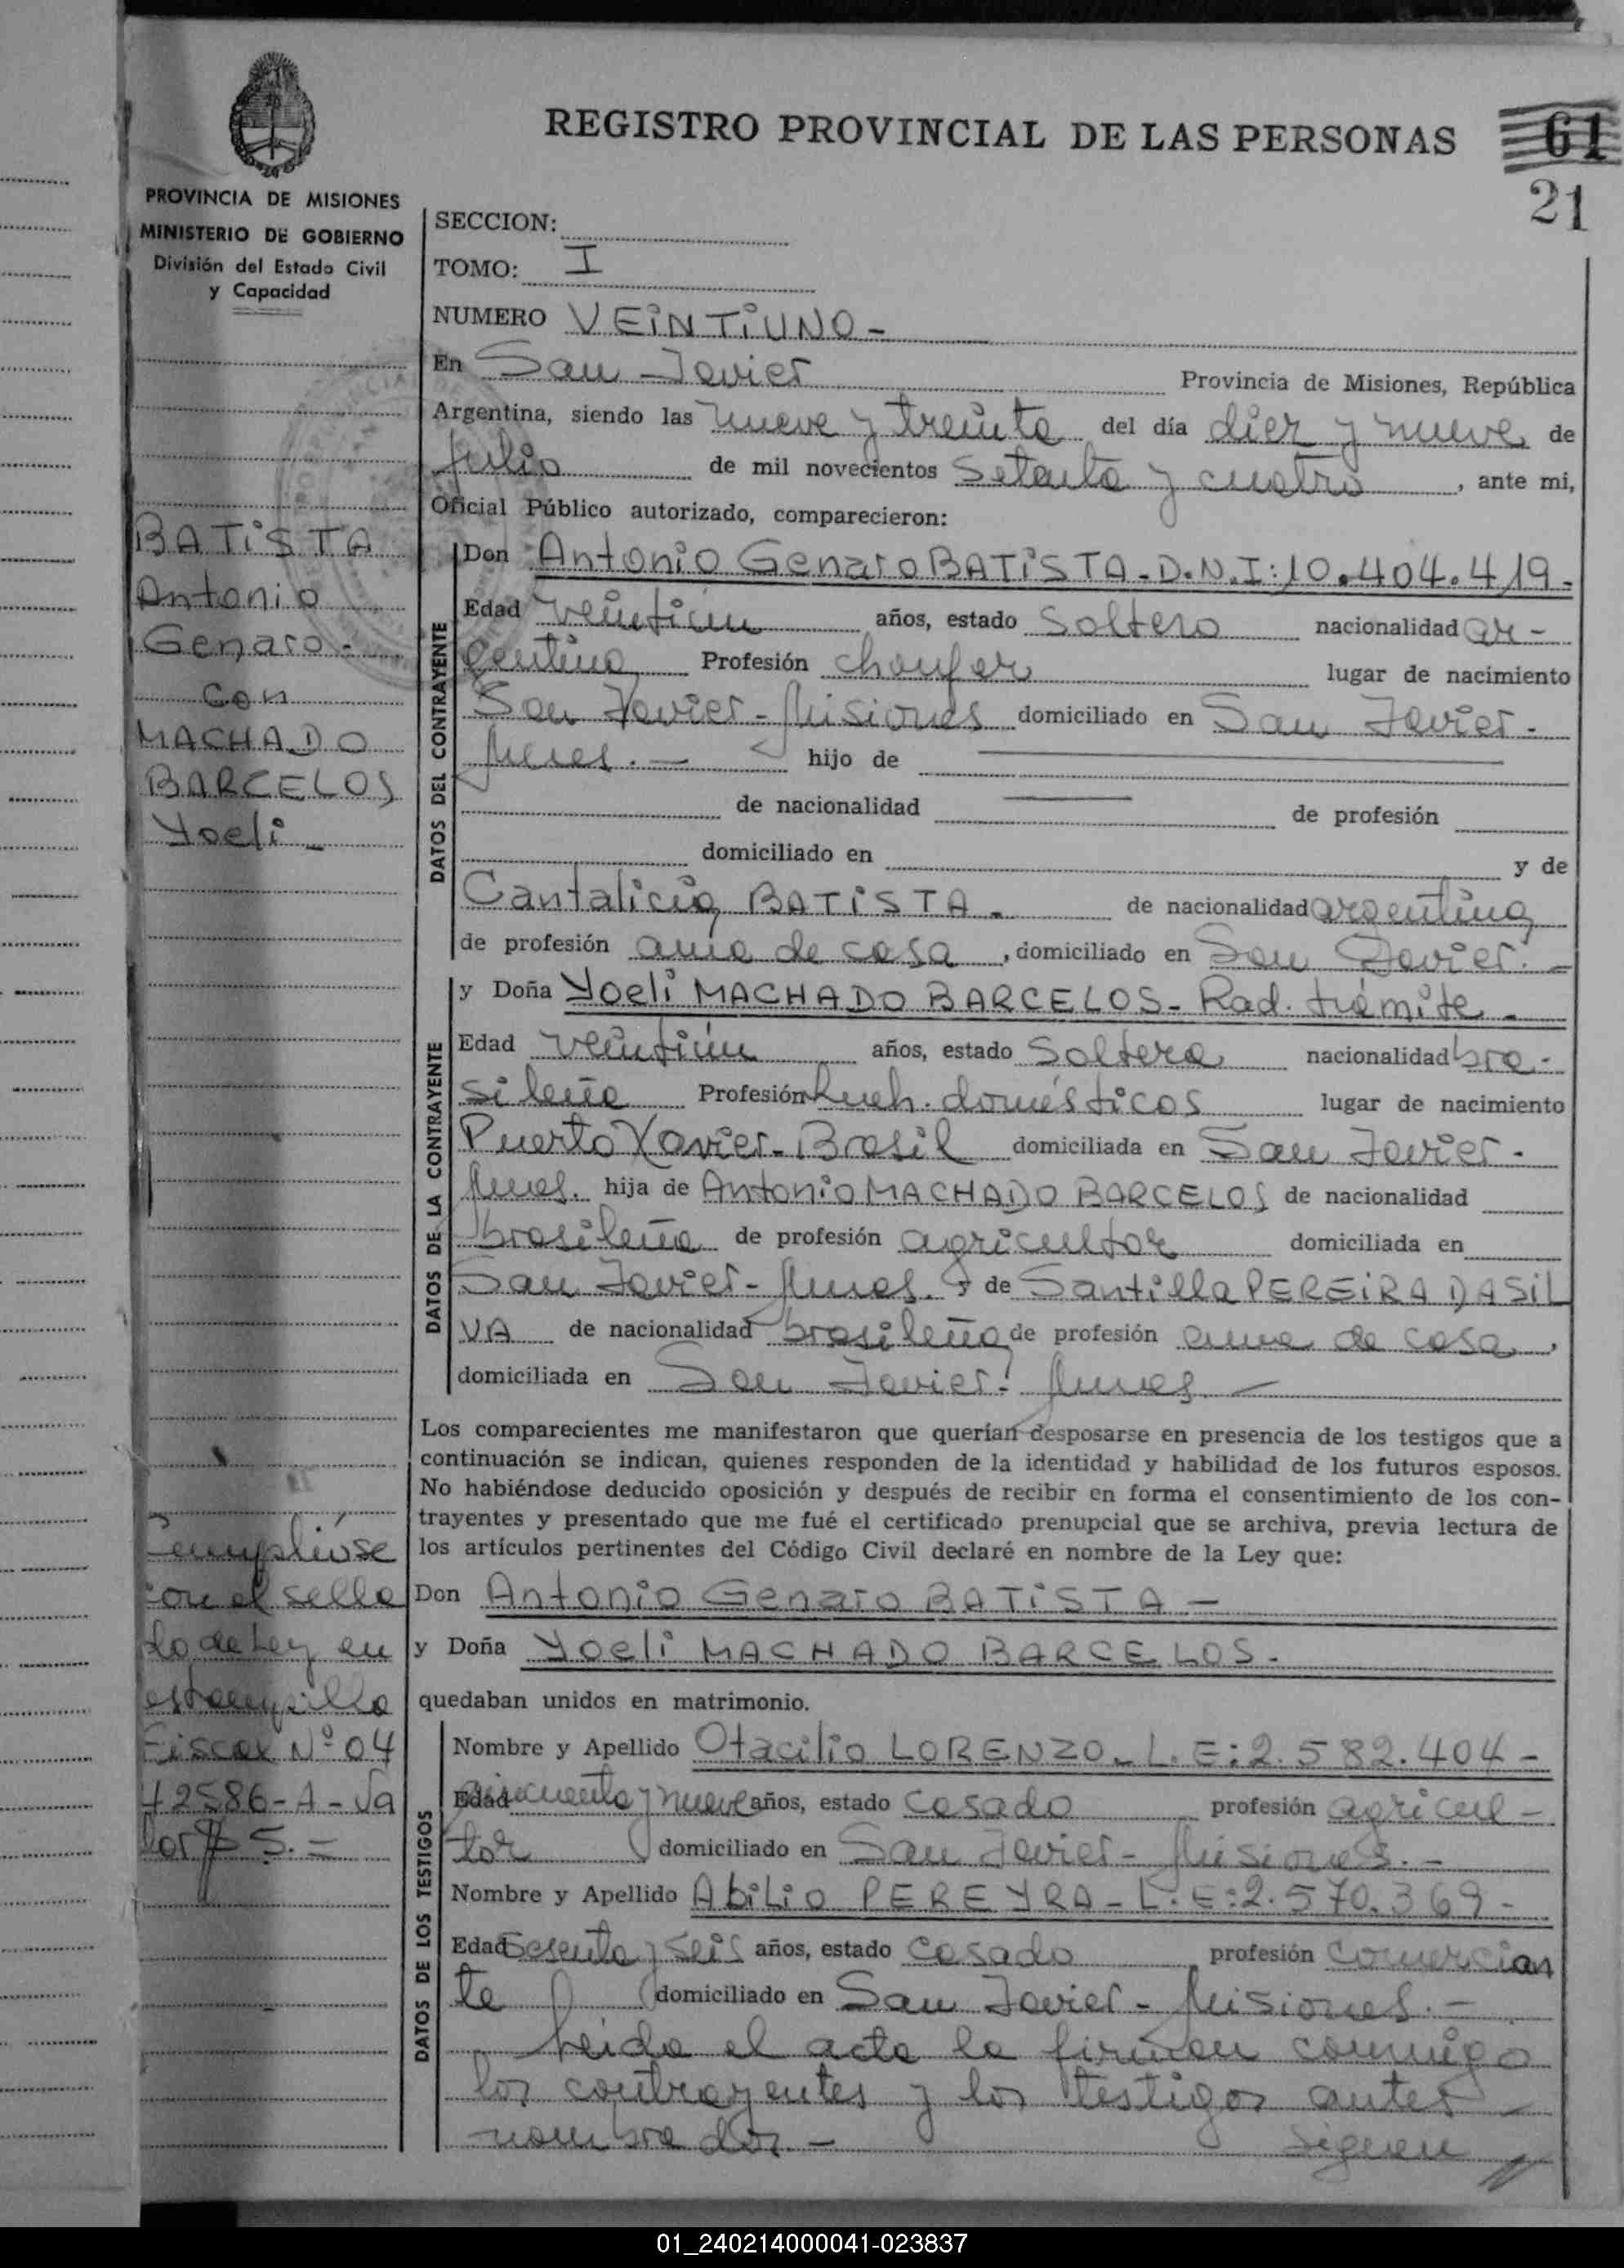 REGISTRO PROVINCIAL DE LAS PERSONAS
61
21
PROVINCIA DE MISIONES
MINISTERIO DE GOBIERNO
División del Estado Civil
y Capacidad
SECCION:
TOMO: I
NUMERO VEiNTiUNO-
En San Javier Provincia de Misiones, República
Argentina, siendo las nueve y treinta del día diez y nueve de
julio de mil novecientos setenta y cuatro, ante mi,
Oficial Público autorizado, comparecieron:
BATiSTA
Antonio
Genaro-
con
MACHADO
BARCELOS
Yoeli-
DATOS DEL CONTRAYENTE
Don Antonio Genaro BATiSTA-D.N.I:10.404.419-
Edad veintiún años, estado soltero nacionalidad ar-
gentino Profesión choufer lugar de nacimiento
San Javier-Misiones domiciliado en San Javier-
Mnes.- hijo de
de nacionalidad de profesión
domiciliado en y de
Cantalicia BATiSTA- de nacionalidad argentina
de profesión ama de casa, domiciliado en San Javier.-
DATOS DE LA CONTRAYENTE
y Doña Yoeli MACHADO BARCELOS- Rad. trámite-
Edad veintiún años, estado soltera nacionalidad bra-
sileña Profesión Queh. domésticos lugar de nacimiento
Puerto Xavier-Brasil domiciliada en San Javier-
Mnes. hija de Antonio MACHADO BARCELOS de nacionalidad
brasileña de profesión agricultor domiciliada en
San Javier-Mnes. y de Santilla PEREiRA DASiL
VA de nacionalidad brasileña de profesión ama de casa,
domiciliada en San Javier-Mnes.-
Los comparecientes me manifestaron que querían desposarse en presencia de los testigos que a
continuación se indican, quienes responden de la identidad y habilidad de los futuros esposos.
No habiéndose deducido oposición y después de recibir en forma el consentimiento de los con-
trayentes y presentado que me fué el certificado prenupcial que se archiva, previa lectura de
los artículos pertinentes del Código Civil declaré en nombre de la Ley que:
Don Antonio Genaro BATiSTA-
y Doña Yoeli MACHADO BARCELOS-
quedaban unidos en matrimonio.
Cumplióse
con el sella
do de Ley en
estampilla
Fiscal Nº 04
42586-A-Va
lor $ 5.=
DATOS DE LOS TESTIGOS
Nombre y Apellido Otacilio LORENZO-L.E:2.582.404-
Edad cincuenta y nueve años, estado casado profesión agricul-
tor domiciliado en San Javier-Misiones.-
Nombre y Apellido Abilio PEREYRA-L.E:2.570.369-
Edad sesenta y seis años, estado casado profesión comercian
te domiciliado en San Javier-Misiones.-
Leida el acta la firman conmigo
los contrayentes y los testigos antes
nombrados.- siguen //
01_240214000041-023837